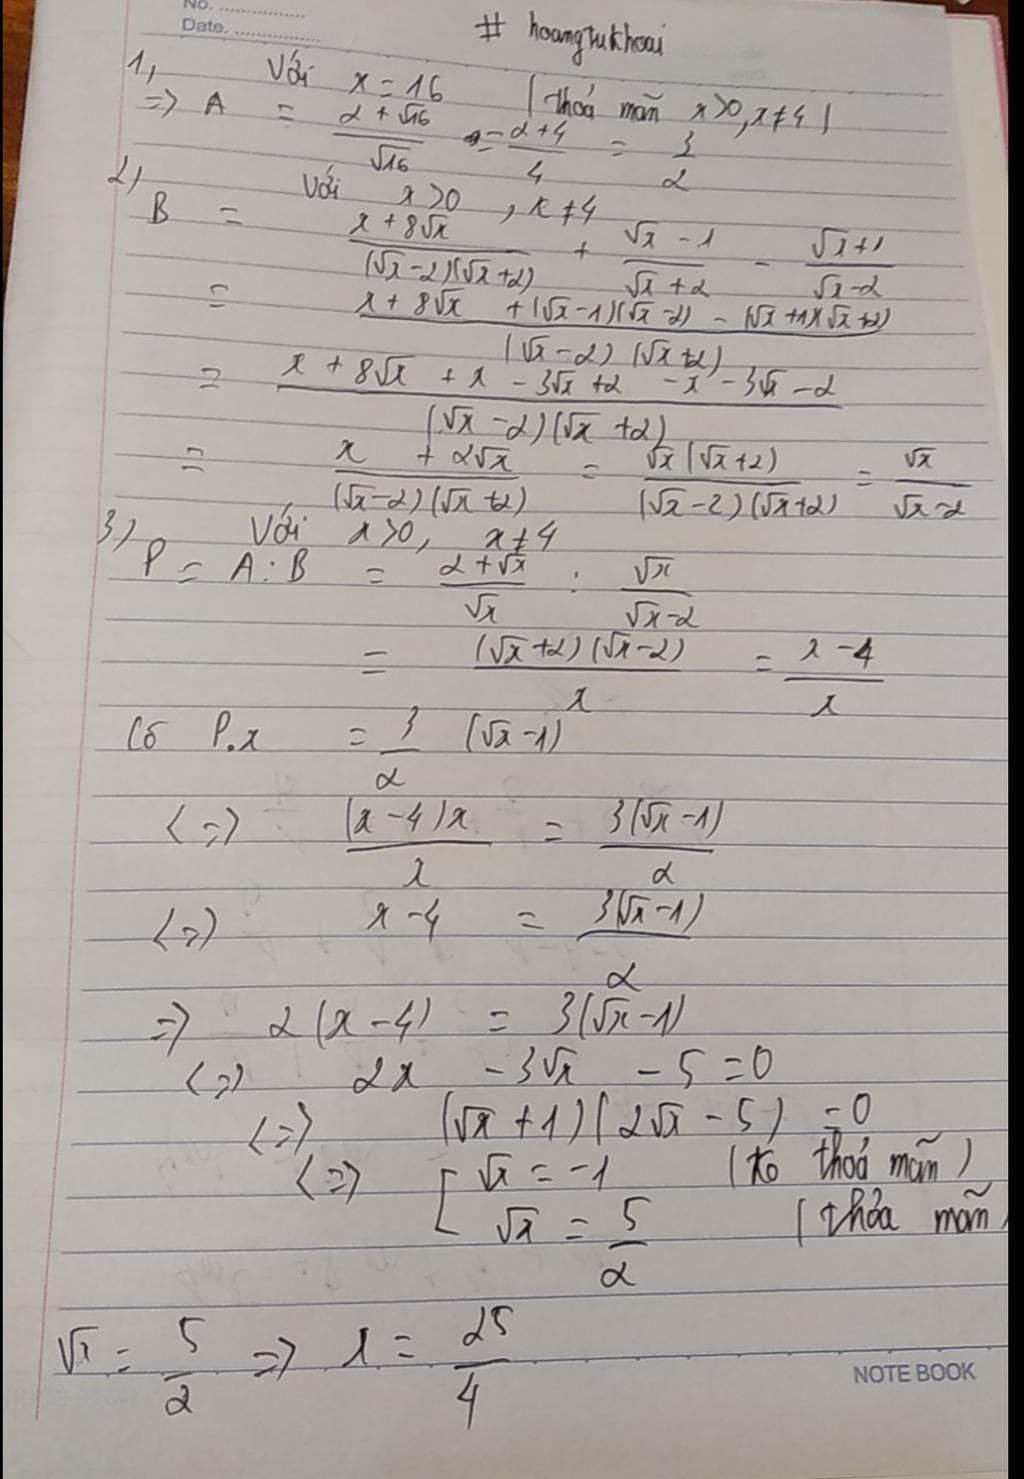 No. ................
Date. ................
# hoangtukhoai
1, Với x = 16 (thoả mãn x>0, x≠4)
=> A = (2 + √16)/√16 = (2+4)/4 = 3/2
2, Với x>0, x≠4
B = (x + 8√x)/((√x-2)(√x+2)) + (√x - 1)/(√x + 2) - (√x+1)/(√x-2)
= (x + 8√x + (√x-1)(√x-2) - (√x+1)(√x+2))/((√x-2)(√x+2))
= (x + 8√x + x - 3√x + 2 - x - 3√x - 2)/((√x - 2)(√x + 2))
= (x + 2√x)/((√x-2)(√x+2)) = √x(√x+2)/((√x-2)(√x+2)) = √x/(√x-2)
3, Với x>0, x≠4
P = A : B = (2+√x)/√x : √x/(√x-2)
= (√x+2)(√x-2)/x = (x-4)/x
Có P.x = 3/2 (√x-1)
<=> (x-4)x/x = 3(√x-1)/2
<=> x-4 = 3(√x-1)/2
=> 2(x-4) = 3(√x-1)
<=> 2x - 3√x - 5 = 0
<=> (√x+1)(2√x-5) = 0
<=> [ √x = -1 (ko thoả mãn)
√x = 5/2 (thỏa mãn
√x = 5/2 => x = 25/4
NOTE BOOK